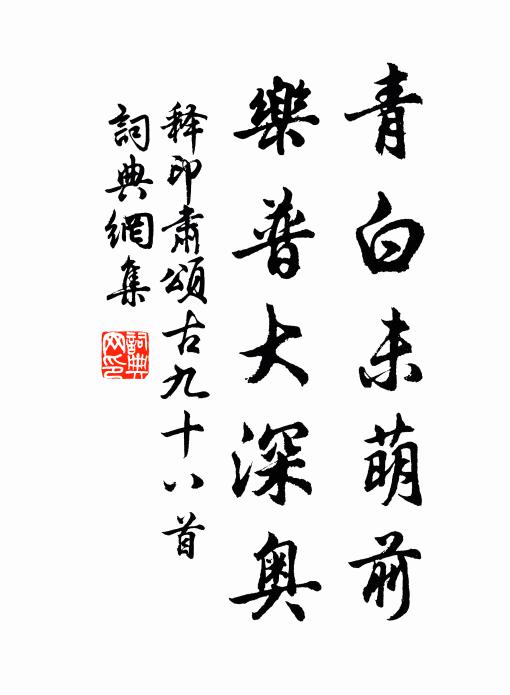 青白未萌前
樂普大深奧
释印肅頌古九十八首
詞典網集
詞典網印